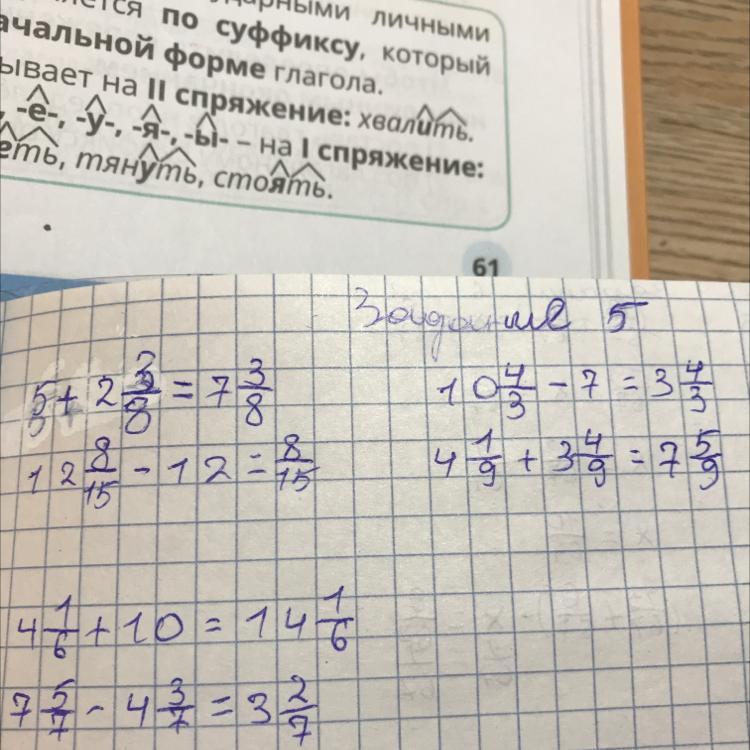 ударными личными
по суффиксу, который
начальной форме глагола.
на II спряжение: хвалить.
-е-, -у-, -я-, -ы- – на I спряжение:
тянуть, стоять.
61
Задание 5
5 + 2 3/8 = 7 3/8
10 4/3 - 7 = 3 4/3
12 8/15 - 12 = 8/15
4 1/9 + 3 4/9 = 7 5/9
4 1/6 + 10 = 14 1/6
7 5/7 - 4 3/7 = 3 2/7